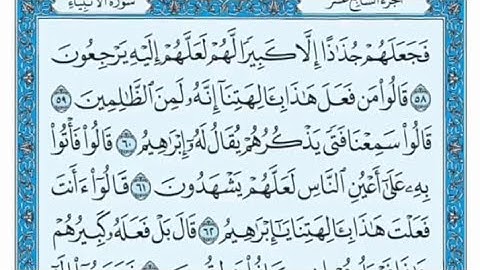 سورة الأنبياء
الجزء السابع عشر
فَجَعَلَهُمْ جُذَٰذًا إِلَّا كَبِيرًا لَّهُمْ لَعَلَّهُمْ إِلَيْهِ يَرْجِعُونَ
٥٨ قَالُوا۟ مَن فَعَلَ هَٰذَا بِـَٔالِهَتِنَآ إِنَّهُۥ لَمِنَ ٱلظَّٰلِمِينَ ٥٩
قَالُوا۟ سَمِعْنَا فَتًى يَذْكُرُهُمْ يُقَالُ لَهُۥٓ إِبْرَٰهِيمُ ٦٠ قَالُوا۟ فَأْتُوا۟
بِهِۦ عَلَىٰٓ أَعْيُنِ ٱلنَّاسِ لَعَلَّهُمْ يَشْهَدُونَ ٦١ قَالُوٓا۟ ءَأَنتَ
فَعَلْتَ هَٰذَا بِـَٔالِهَتِنَا يَٰٓإِبْرَٰهِيمُ ٦٢ قَالَ بَلْ فَعَلَهُۥ كَبِيرُهُمْ